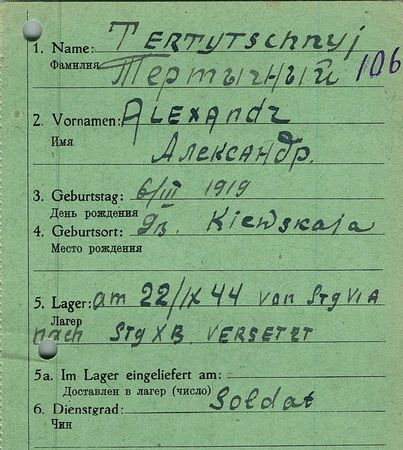 1. Name: TERTYTSCHNYJ
Фамилия Тертычный 106
2. Vornamen: ALEXANDR
Имя Александр.
3. Geburtstag: 6/III 1919
День рождения
4. Geburtsort: Kiewskaja
Место рождения
5. Lager: am 22/IX 44 von Stg VI A
Лагер
nach Stg X B. VERSETZT
5a. Im Lager eingeliefert am:
Доставлен в лагер (число)
6. Dienstgrad: Soldat
Чин